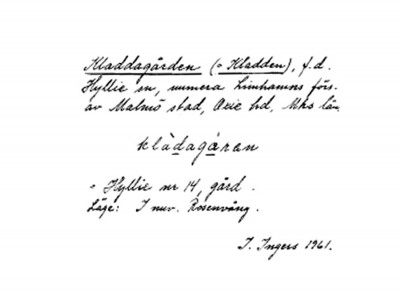 Kladdagården (o Kladden), f.d.
Hyllie sn, numera Limhamns förs.
av Malmö stad, Oxie hd, Mhs län
klàdagåran
" Hyllie nr 14, gård.
Läge: I nuv. Rosenvång.
I. Ingers 1961.